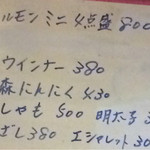 ルモン ミニ 4点盛 800
ウインナー 380
森にんにく 430
しゃも 500 明太子
ざし 380 エシャレット 30